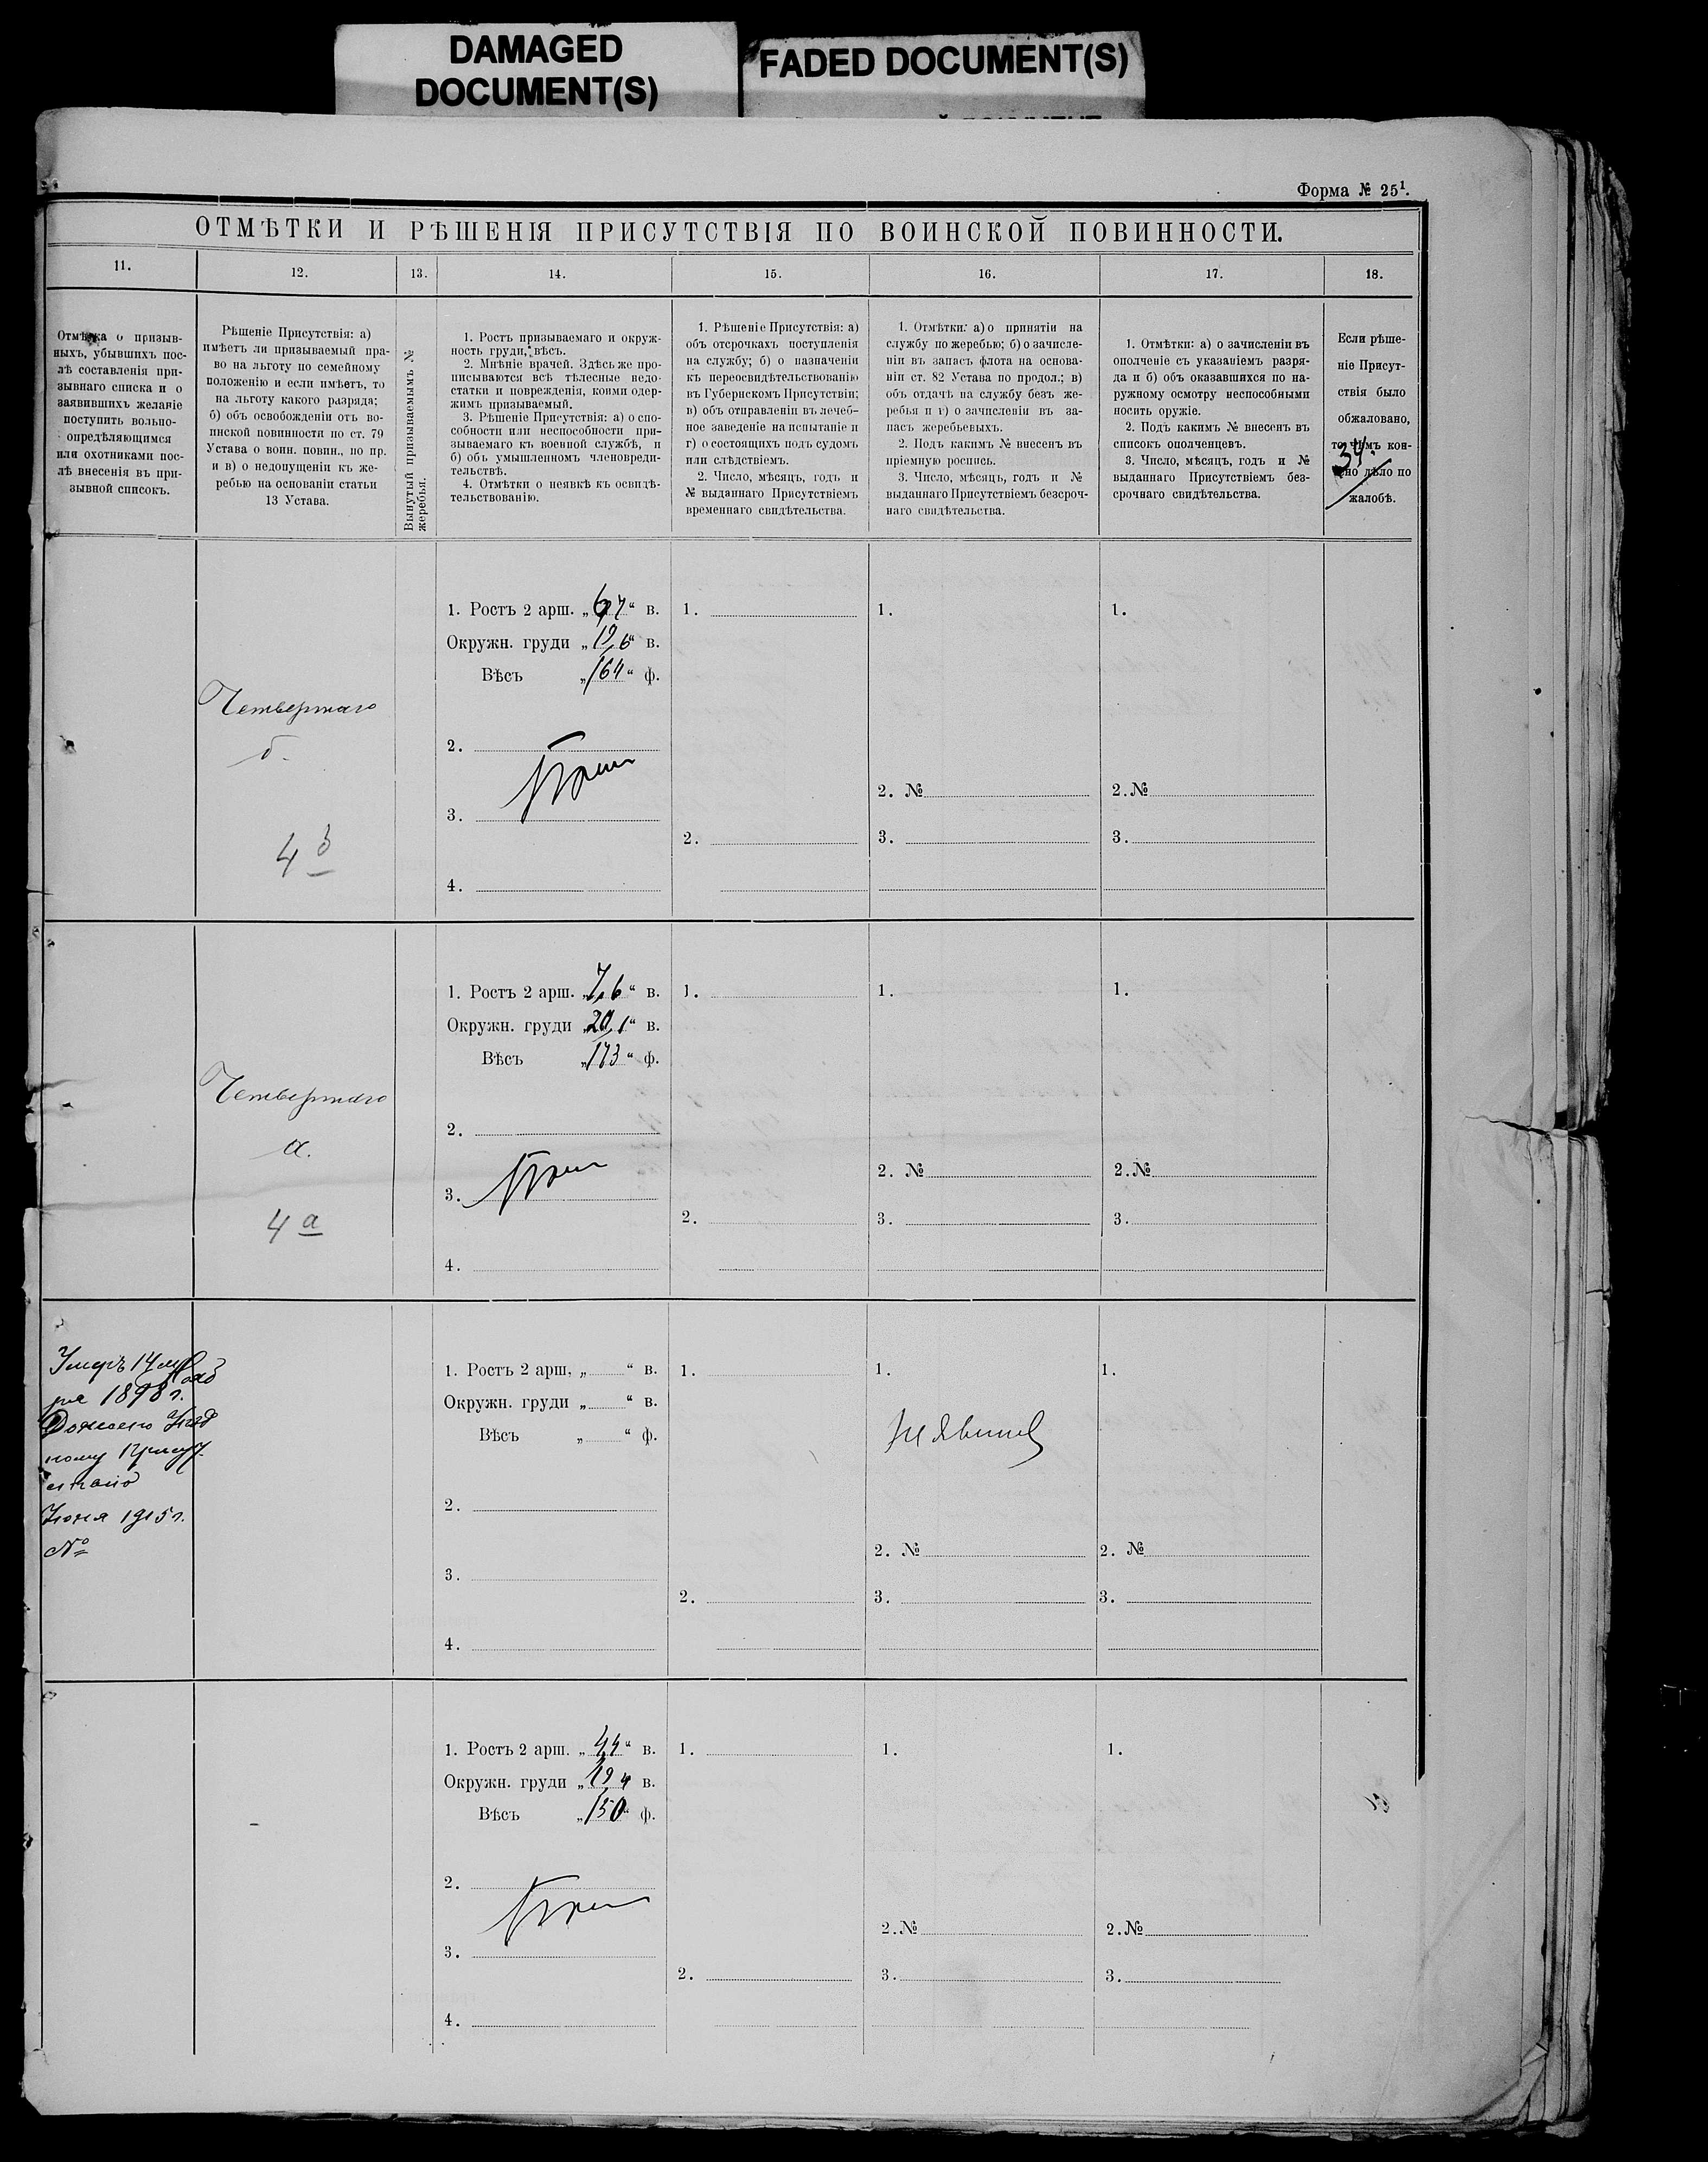 DAMAGED
DOCUMENT(S)
FADED DOCUMENT(S)
Форма № 25¹.
ОТМѢТКИ И РѢШЕНІЯ ПРИСУТСТВІЯ ПО ВОИНСКОЙ ПОВИННОСТИ.
11.
12.
13.
14.
15.
16.
17.
18.
Отмѣтка о призыв-
ныхъ, убывшихъ пос-
лѣ составленія при-
зывнаго списка и о
заявившихъ желаніе
поступить вольно-
опредѣляющимся
или охотниками пос-
лѣ внесенія въ при-
зывной списокъ.
Рѣшеніе Присутствія: а)
имѣетъ ли призываемый пра-
во на льготу по семейному
положенію и если имѣетъ, то
на льготу какого разряда;
б) объ освобожденіи отъ во-
инской повинности по ст. 79
Устава о воин. повин., по пр.
и в) о недопущеніи къ же-
ребью на основаніи статьи
13 Устава.
Вынутый призываемымъ №
жеребья.
1. Ростъ призываемаго и окруж-
ность груди, вѣсъ.
2. Мнѣніе врачей. Здѣсь же про-
писываются всѣ тѣлесные недо-
статки и поврежденія, коими одер-
жимъ призываемый.
3. Рѣшеніе Присутствія: а) о спо-
собности или неспособности при-
зываемаго къ военной службѣ, и
б) объ умышленномъ членовреди-
тельствѣ.
4. Отмѣтки о неявкѣ къ освидѣ-
тельствованію.
1. Рѣшеніе Присутствія: а)
объ отсрочкахъ поступленія
на службу; б) о назначеніи
къ переосвидѣтельствованію
въ Губернскомъ Присутствіи;
в) объ отправленіи въ лечеб-
ное заведеніе на испытаніе и
г) о состоящихъ подъ судомъ
или слѣдствіемъ.
2. Число, мѣсяцъ, годъ и
№ выданнаго Присутствіемъ
временнаго свидѣтельства.
1. Отмѣтки: а) о принятіи на
службу по жеребью; б) о зачисле-
ніи въ запасъ флота на основа-
ніи ст. 82 Устава по продол.; в)
объ отдачѣ на службу безъ же-
ребья и г) о зачисленіи въ за-
пасъ жеребьевыхъ.
2. Подъ какимъ № внесенъ въ
пріемную роспись.
3. Число, мѣсяцъ, годъ и №
выданнаго Присутствіемъ безсроч-
наго свидѣтельства.
1. Отмѣтки: а) о зачисленіи въ
ополченіе съ указаніемъ разря-
да и б) объ оказавшихся по на-
ружному осмотру неспособными
носить оружіе.
2. Подъ какимъ № внесенъ въ
списокъ ополченцевъ.
3. Число, мѣсяцъ, годъ и №
выданнаго Присутствіемъ без-
срочнаго свидѣтельства.
Если рѣше-
ніе Присут-
ствія было
обжаловано,
то чѣмъ кон-
чено дѣло по
жалобѣ.
34.
1. Ростъ 2 арш. „6,7“ в.
Окружн. груди „19,6“ в.
Вѣсъ „164“ ф.
Четвертаго
б.
4 б
2.
3.
4.
1.
2.
1.
2. №
3.
1.
2. №
3.
1. Ростъ 2 арш. „7,6“ в.
Окружн. груди „20,1“ в.
Вѣсъ „173“ ф.
Четвертаго
а.
4 а
2.
3.
4.
1.
2.
1.
2. №
3.
1.
2. №
3.
Умеръ 14
ря 1898 г.
Донесено Уѣзд
ному
Іюня 1915 г.
№
1. Ростъ 2 арш. „ “ в.
Окружн. груди „ “ в.
Вѣсъ „ “ ф.
2.
3.
4.
1.
2.
1.
2. №
3.
1.
2. №
3.
1. Ростъ 2 арш. „4,4“ в.
Окружн. груди „19,4 в.
Вѣсъ „150“ ф.
2.
3.
4.
1.
2.
1.
2. №
3.
1.
2. №
3.